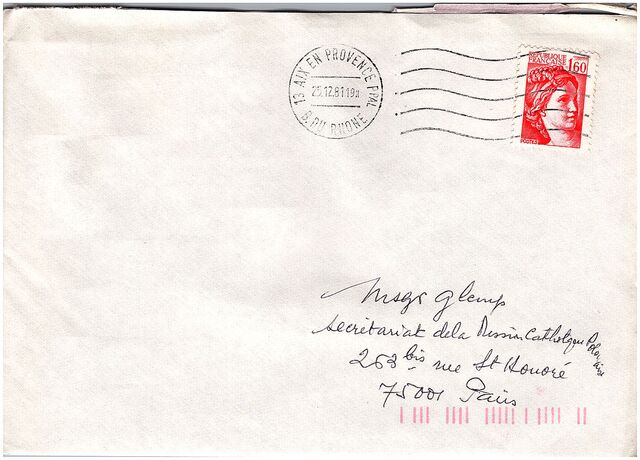 13 AIX EN PROVENCE PPAL
25.12.81·19H
B. DU RHONE
REPUBLIQUE
FRANCAISE
1,60
POSTES
Msgr Glemp
Secrétariat de la Mission Catholique Polonaise
263 bis rue St Honoré
75001 Paris